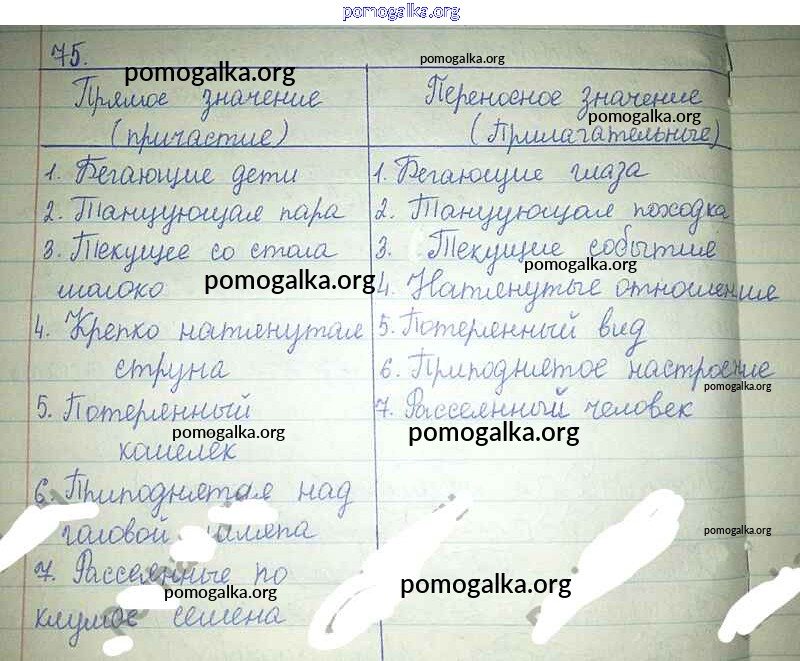 pomogalka.org
75.
pomogalka.org
pomogalka.org
Прямое значение
(причастие)
Переносное значение
pomogalka.org
(Прилагательные)
1. Бегающие дети
1. Бегающие глаза
2. Танцующая пара
2. Танцующая походка
3. Текущее со стола
молоко
3. Текущие событие
pomogalka.org
pomogalka.org
4. Натянутые отношение
4. Крепко натянутая
струна
5. Потерянный вид
6. Приподнятое настроение
pomogalka.org
5. Потерянный
кошелек
pomogalka.org
7. Рассеянный человек
pomogalka.org
6. Приподнятая над
головой шляпа
pomogalka.org
7. Рассеянные по
клумбе семена
pomogalka.org
pomogalka.org
pomogalka.org